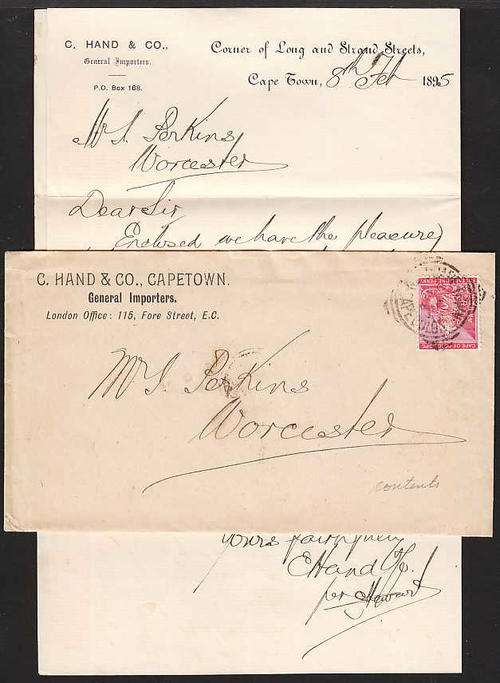 C. HAND & CO.,
General Importers.
P.O. Box 168.
Corner of Long and Strand Streets,
Cape Town, 8th Feb 1895
Mr S. Perkins
Worcester
Dear Sir
Enclosed we have the pleasure
C. HAND & CO., CAPETOWN.
General Importers.
London Office: 115, Fore Street, E.C.
Mr S. Perkins
Worcester
contents
yours faithfully
CHand &Co.
per